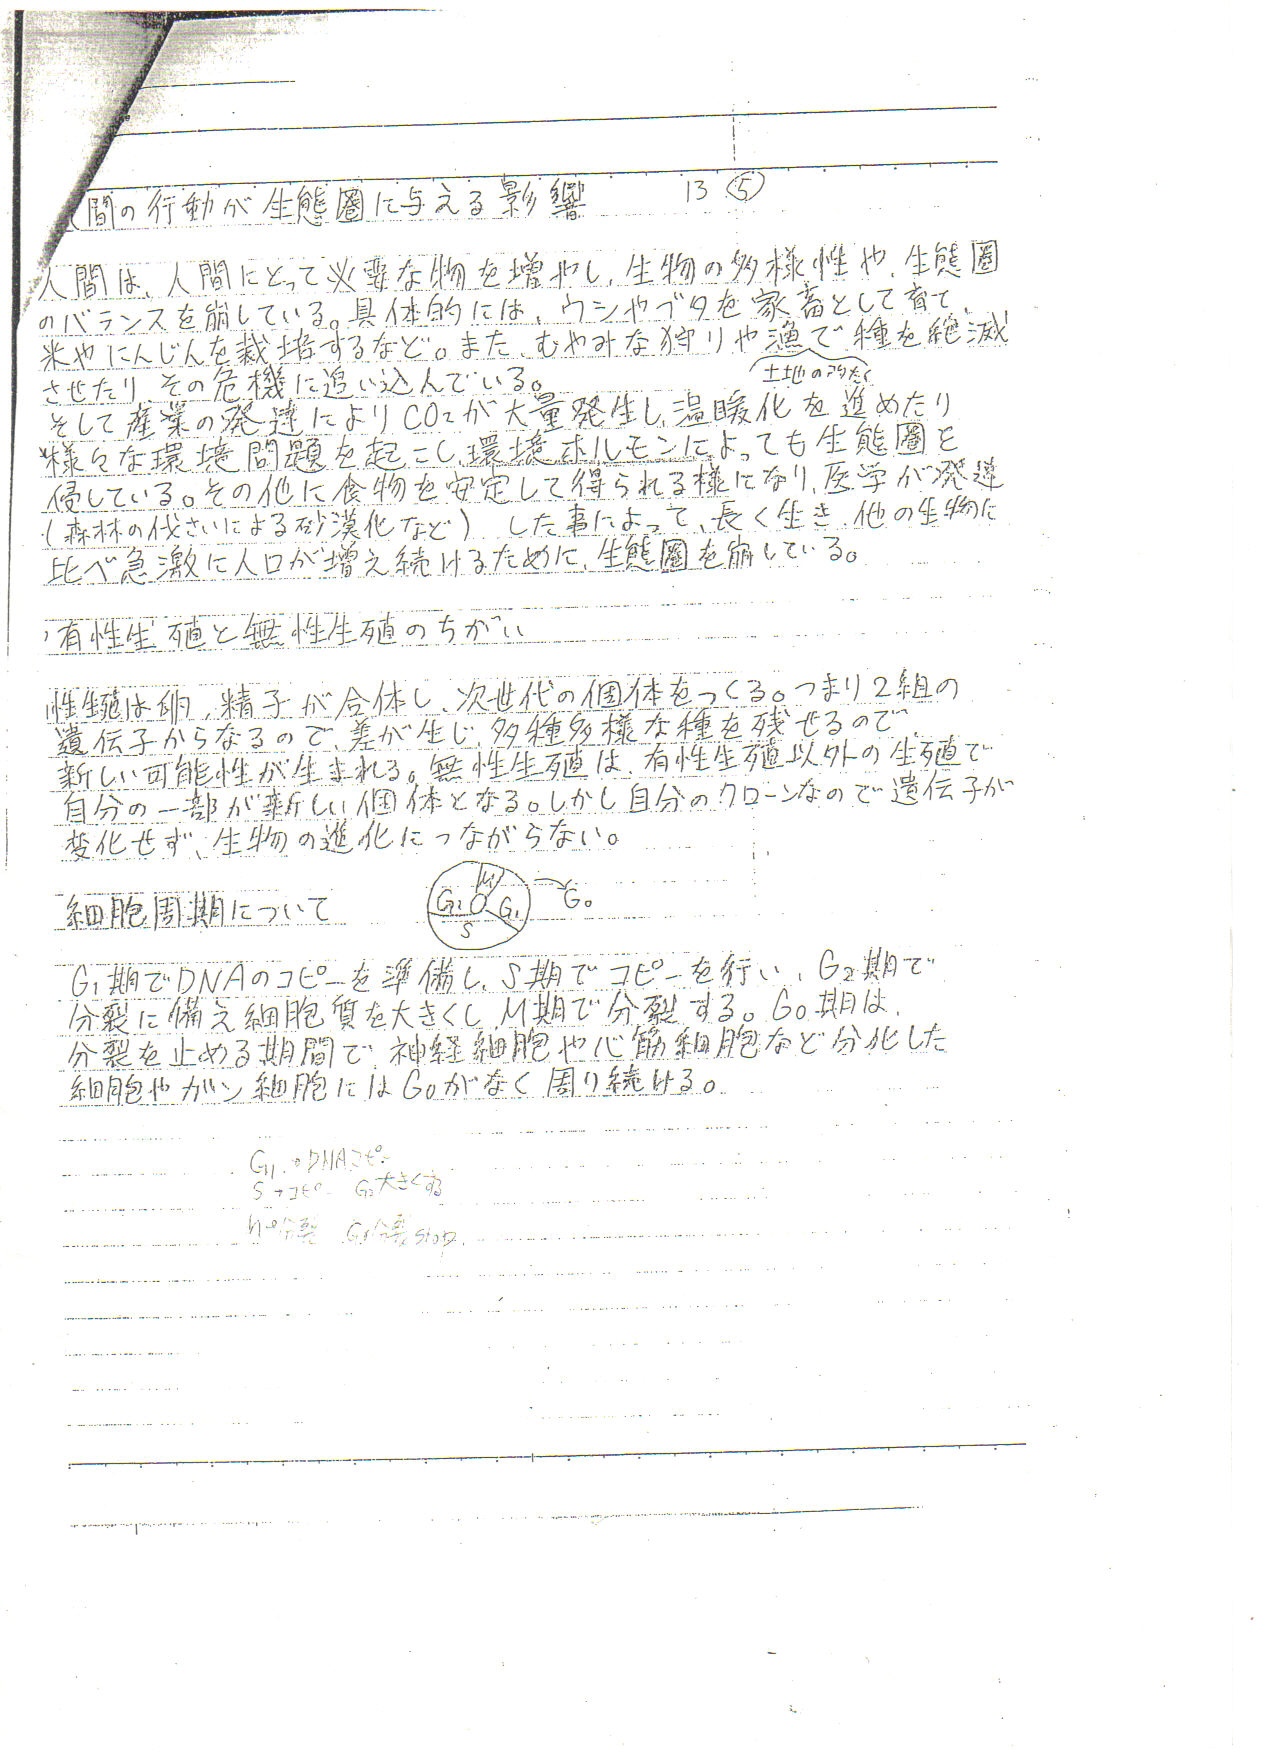 間の行動が生態圏に与える影響 13 ⑤
人間は、人間にとって必要な物を増やし、生物の多様性や、生態圏
のバランスを崩している。具体的には、ウシやブタを家畜として育て、
米やにんじんを栽培するなど。また、むやみな狩りや漁で種を絶滅
土地の汚たく
させたり、その危機に追い込んでいる。
そして産業の発達によりCO2が大量発生し、温暖化を進めたり
様々な環境問題を起こし、環境ホルモンによっても生態圏を
侵している。その他に食物を安定して得られる様になり、医学が発達
(森林の伐さいによる砂漠化など) した事によって、長く生き、他の生物に
比べ急激に人口が増え続けるために、生態圏を崩している。
有性生殖と無性生殖のちがい
性生殖は卵、精子が合体し、次世代の個体をつくる。つまり2組の
遺伝子からなるので、差が生じ、多種多様な種を残せるので、
新しい可能性が生まれる。無性生殖は、有性生殖以外の生殖で
自分の一部が新しい個体となる。しかし自分のクローンなので遺伝子が
変化せず、生物の進化につながらない。
細胞周期について
M G2 G1 S G0
G1期でDNAのコピーを準備し、S期でコピーを行い、G2期で
分裂に備え細胞質を大きくし、M期で分裂する。G0期は、
分裂を止める期間で、神経細胞や心筋細胞など分化した
細胞やガン細胞にはG0がなく周り続ける。
G1→DNAコピー
S→コピー G2大きくする
M→分裂 分裂stop